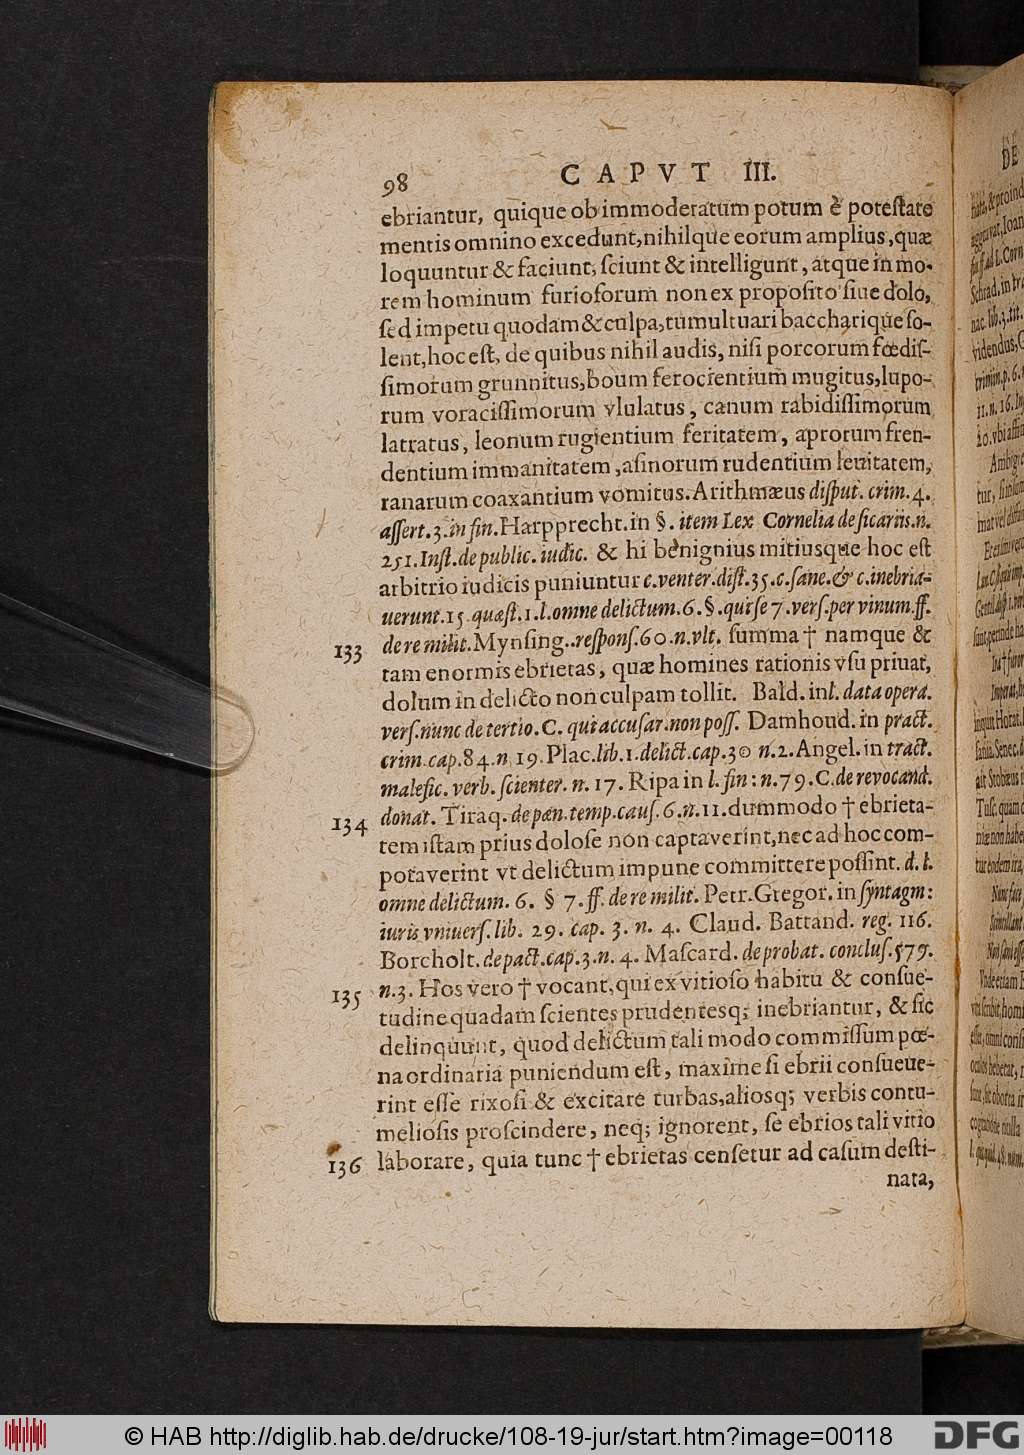 98 CAPVT III.
ebriantur, quique ob immoderatum potum è poteſtate
mentis omnino excedunt, nihilque eorum amplius, quæ
loquuntur & faciunt, ſciunt & intelligunt, atque in mo-
rem hominum furioſorum non ex propoſito ſiue dolo,
ſed impetu quodam & culpa, tumultuari baccharique ſo-
lent, hoc eſt, de quibus nihil audis, niſi porcorum fœdiſ-
ſimorum grunnitus, boum ferocientium mugitus, lupo-
rum voraciſſimorum vlulatus, canum rabidiſſimorum
latratus, leonum rugientium feritatem, aprorum fren-
dentium immanitatem, aſinorum rudentium leuitatem,
ranarum coaxantium vomitus. Arithmæus diſput. crim. 4.
aſſert. 3. in fin. Harpprecht. in §. item Lex Cornelia de ſicariis. n.
251. Inſt. de public. iudic. & hi benignius mitiusque hoc eſt
arbitrio iudicis puniuntur c. venter. diſt. 35. c. ſane. & c. inebria-
uerunt. 15 quæſt. 1. l. omne delictum. 6. §. qui ſe 7. verſ. per vinum. ff.
133 de re milit. Mynſing.. reſponſ. 60. n. vlt. ſumma † namque &
tam enormis ebrietas, quæ homines rationis vſu priuat,
dolum in delicto non culpam tollit. Bald. in l. data opera.
verſ. nunc de tertio. C. qui accuſar. non poſſ. Damhoud. in pract.
crim. cap. 84. n 19. Plac. lib. 1. delict. cap. 30 n. 2. Angel. in tract.
malefic. verb. ſcienter. n. 17. Ripa in l. fin: n. 79. C. de revocand.
134 donat. Tiraq. de pœn. temp. cauſ. 6. n. 11. dummodo † ebrieta-
tem iſtam prius doloſe non captaverint, nec ad hoc com-
potaverint vt delictum impune committere poſſint. d. l.
omne delictum. 6. § 7. ff. de re milit. Petr. Gregor. in ſyntagm:
iuris vniuerſ. lib. 29. cap. 3. n. 4. Claud. Battand. reg. 116.
Borcholt. de pact. cap. 3. n. 4. Maſcard. de probat. concluſ. 579.
135 n. 3. Hos vero † vocant, qui ex vitioſo habitu & conſue-
tudine quadam ſcientes prudentesq; inebriantur, & ſic
delinquunt, quod delictum tali modo commiſſum pœ-
na ordinaria puniendum eſt, maxime ſi ebrii conſueue-
rint eſſe rixoſi & excitare turbas, aliosq; verbis contu-
melioſis proſcindere, neq; ignorent, ſe ebrios tali vitio
136 laborare, quia tunc † ebrietas cenſetur ad caſum deſti-
nata,
© HAB http://diglib.hab.de/drucke/108-19-jur/start.htm?image=00118
DFG